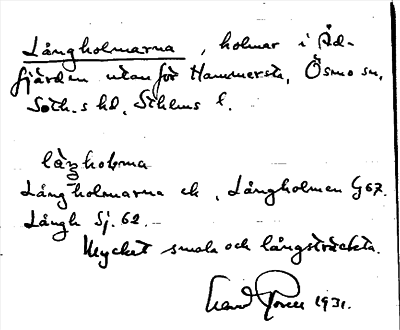 Långholmarna, holmar i Åd-
fjärden utanför Hammersta, Ösmo sn,
Soth.s hd, Sthlms l.
långholma
Långholmarna ek, Långholmen G 67.
Långh Sj. 62.
Mycket smala och långsträckta.
1931.